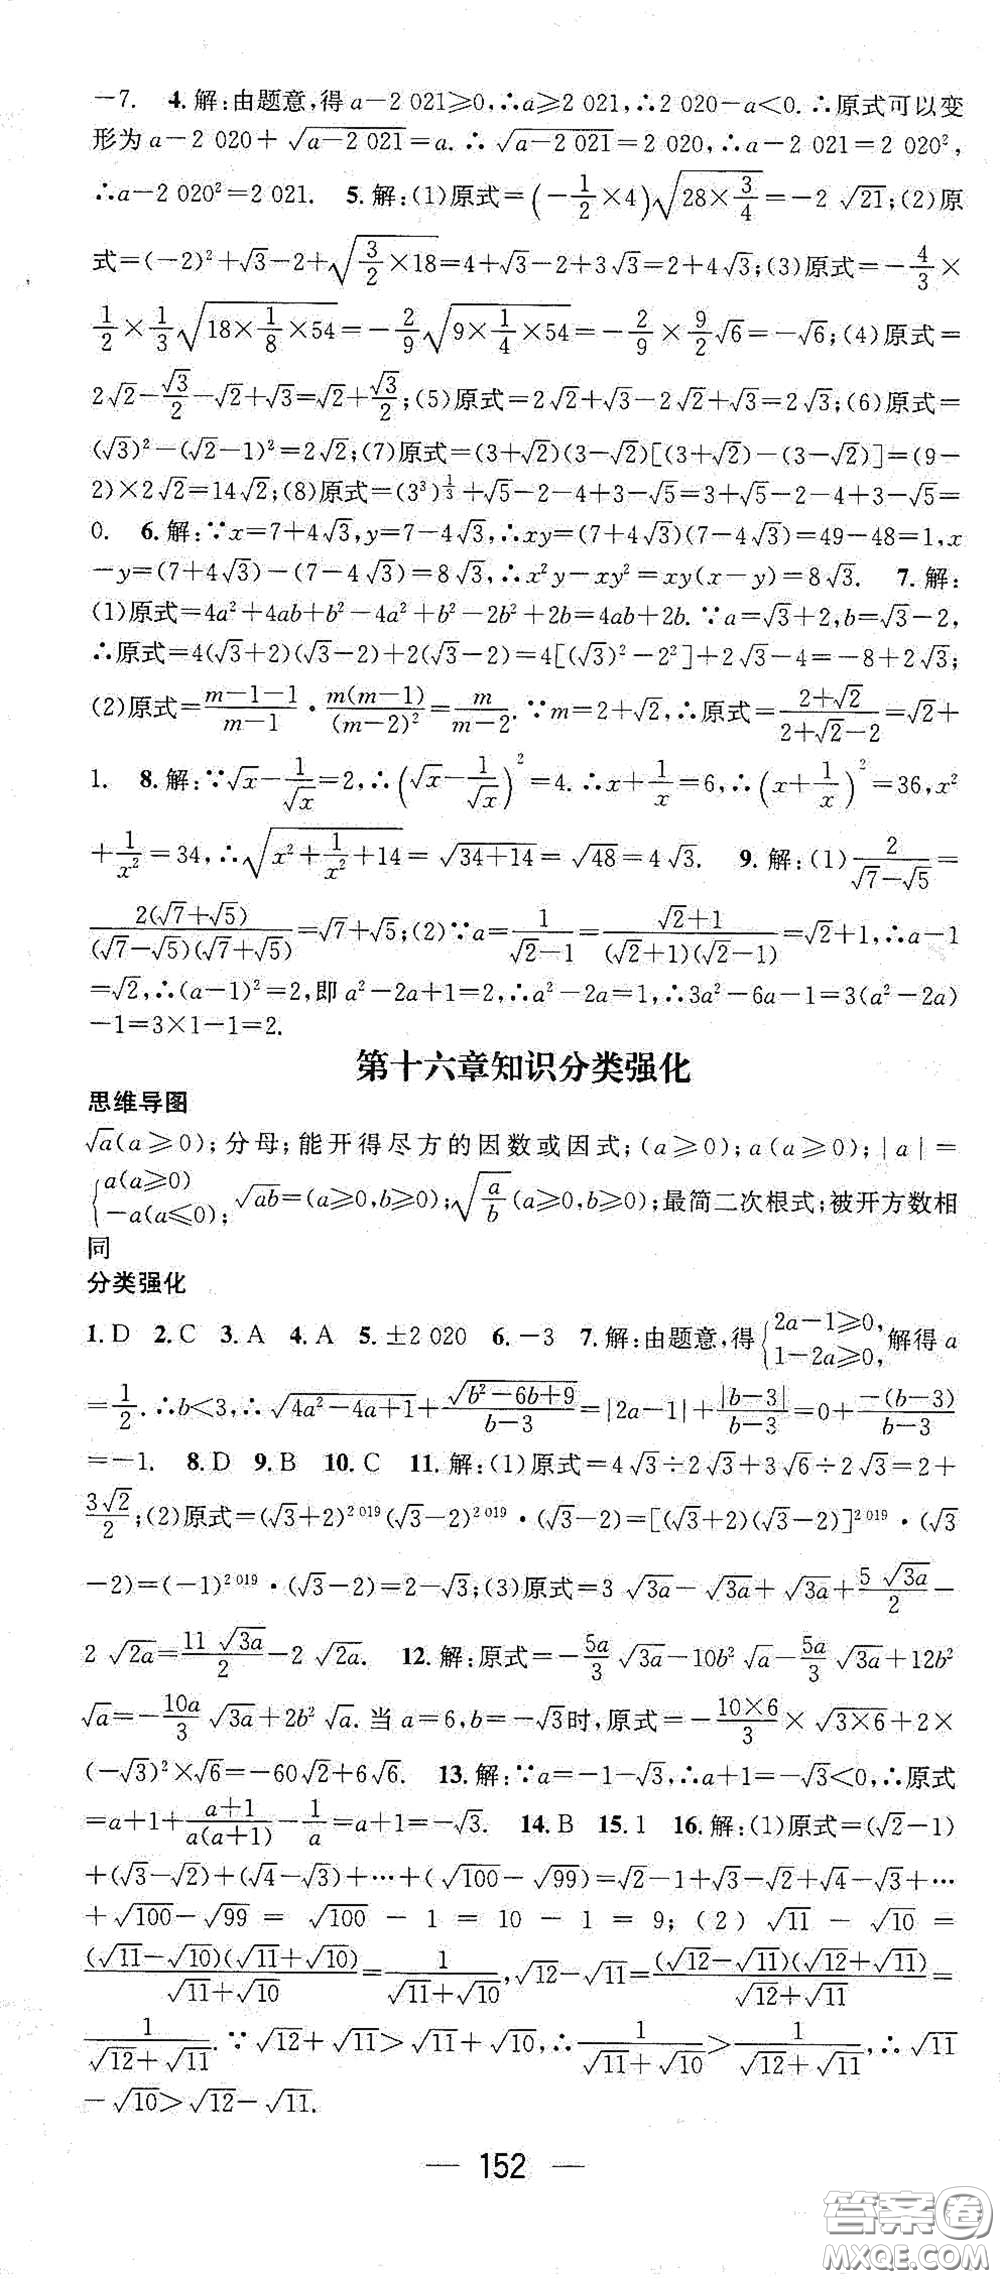 -7. 4.解:由题意,得a-2 021≥0,∴a≥2 021,∴2 020-a<0.∴原式可以变
形为a-2 020+√(a-2 021)=a.∴√(a-2 021)=2 020,∴a-2 021=2 020²,
∴a-2 020²=2 021. 5.解:(1)原式=(-1/2×4)√(28×3/4)=-2√21;(2)原
式=(-2)²+√3-2+√(3/2×18)=4+√3-2+3√3=2+4√3;(3)原式=-4/3×
1/2×1/3√(18×1/8×54)=-2/9√(9×1/4×54)=-2/9×9/2√6=-√6;(4)原式=
2√2-√3/2-√2+√3=√2+√3/2;(5)原式=2√2+√3-2√2+√3=2√3;(6)原式=
(√3)²-(√2-1)²=2√2;(7)原式=(3+√2)(3-√2)[(3+√2)-(3-√2)]=(9-
2)×2√2=14√2;(8)原式=(3³)^(1/3)+√5-2-4+3-√5=3+√5-2-4+3-√5=
0. 6.解:∵x=7+4√3,y=7-4√3,∴xy=(7+4√3)(7-4√3)=49-48=1,x
-y=(7+4√3)-(7-4√3)=8√3,∴x²y-xy²=xy(x-y)=8√3. 7.解:
(1)原式=4a²+4ab+b²-4a²+b²-2b²+2b=4ab+2b.∵a=√3+2,b=√3-2,
∴原式=4(√3+2)(√3-2)+2(√3-2)=4[(√3)²-2²]+2√3-4=-8+2√3;
(2)原式=(m-1-1)/(m-1)·m(m-1)/(m-2)²=m/(m-2).∵m=2+√2,∴原式=(2+√2)/(2+√2-2)=√2+
1. 8.解:∵√x-1/√x=2,∴(√x-1/√x)²=4.∴x+1/x=6,∴(x+1/x)²=36,x²
+1/x²=34,∴√(x²+1/x²+14)=√(34+14)=√48=4√3. 9.解:(1)2/(√7-√5)=
2(√7+√5)/((√7-√5)(√7+√5))=√7+√5;(2)∵a=1/(√2-1)=(√2+1)/((√2+1)(√2-1))=√2+1,∴a-1
=√2,∴(a-1)²=2,即a²-2a+1=2,∴a²-2a=1,∴3a²-6a-1=3(a²-2a)
-1=3×1-1=2.
第十六章知识分类强化
思维导图
√a(a≥0);分母;能开得尽方的因数或因式;(a≥0);a(a≥0);|a|=
{a(a≥0) -a(a≤0); √ab=(a≥0,b≥0);√(a/b)(a≥0,b≥0);最简二次根式;被开方数相
同
分类强化
1.D 2.C 3.A 4.A 5.±2 020 6.-3 7.解:由题意,得{2a-1≥0, 1-2a≥0,解得a
=1/2.∴b<3,∴√(4a²-4a+1)+√(b²-6b+9)/(b-3)=|2a-1|+|b-3|/(b-3)=0+-(b-3)/(b-3)
=-1. 8.D 9.B 10.C 11.解:(1)原式=4√3÷2√3+3√6÷2√3=2+
3√2/2;(2)原式=(√3+2)^2 019(√3-2)^2 019·(√3-2)=[(√3+2)(√3-2)]^2 019·(√3
-2)=(-1)^2 019·(√3-2)=2-√3;(3)原式=3√3a-√3a+√3a+5√3a/2-
2√2a=11√3a/2-2√2a. 12.解:原式=-5a/3√3a-10b²√a-5a/3√3a+12b²
√a=-10a/3√3a+2b²√a.当a=6,b=-√3时,原式=-(10×6)/3×√(3×6)+2×
(-√3)²×√6=-60√2+6√6. 13.解:∵a=-1-√3,∴a+1=-√3<0,∴原式
=a+1+(a+1)/(a(a+1))-1/a=a+1=-√3. 14.B 15.1 16.解:(1)原式=(√2-1)
+(√3-√2)+(√4-√3)+…+(√100-√99)=√2-1+√3-√2+√4-√3+…
+√100-√99=√100-1=10-1=9;(2)√11-√10=
(√11-√10)(√11+√10)/(√11+√10)=1/(√11+√10),√12-√11=(√12-√11)(√12+√11)/(√12+√11)=
1/(√12+√11).∵√12+√11>√11+√10,∴1/(√11+√10)>1/(√12+√11),∴√11
-√10>√12-√11.
— 152 —
答案圈
MXQE.COM